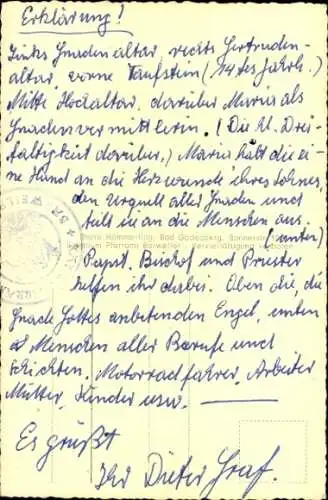 Erklärung!
Links Gnadenaltar, rechts Gertruden-
altar, vorne Taufstein (14tes Jahrh.)
Mitte Hochaltar, darüber Maria als
Gnadenvermittlerin. (Die hl. Drei-
faltigkeit darüber.) Maria hält die ei-
ne Hand an die Herzwunde ihres Sohnes,
den Urquell aller Gnaden und
teilt sie an die Menschen aus.
(unten)
Foto Hämmerling, Bad Godesberg,
Pfarramt Vervielfältigung verboten
Papst, Bischof und Priester
helfen ihr dabei. Oben die, die
Gnade Gottes anbetenden Engel, unten
d Menschen aller Berufe und
Schichten. Motorradfahrer, Arbeiter
Mütter, Kinder usw.
Es grüßt
Ihr Dieter Graf.